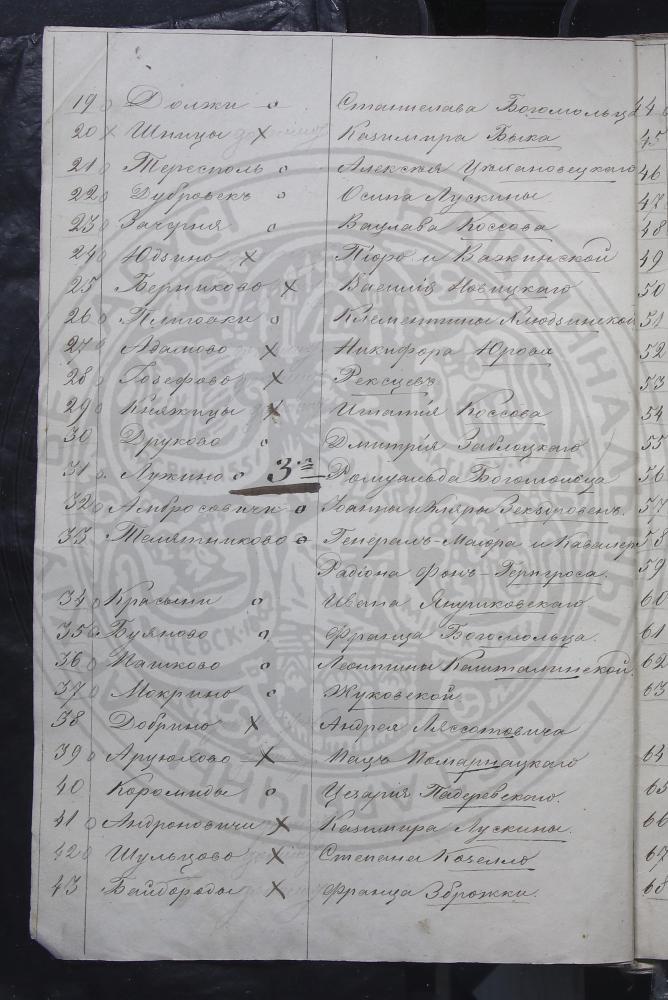 19 o Должи o Станислава Богомольца 44
20 x Шпицы x Казимира Выка 45
21 o Тересполь o Алексея Цехановецкаго 46
22 o Дубровскъ o Осипа Лускины 47
23 o Загурня o Вацлава Коссова 48
24 o Юдзино x Піоро и Важинской 49
25 Берниково x Василія Новицкаго 50
26 o Плиговки o Клементины Клюдзинской 51
27 o Адамово x Никифора Юрова 52
28 o Іозефово x Рексцевъ 53
29 o Княжицы x Игнатія Коссова 54
30 Друково o Дмитрія Заблоцкаго 55
31 o Лужино o 3.я Ромуальда Богомольца 56
32 o Амбросовичи o Іоанны и Клары 57
33 Темятниково o Генералъ-Маіора и Кавалера 58
Радіона Фонъ-Гернгроса. 59
34 o Красыни o Ивана Янчиковскаго 60
35 o Буяново o Франца Богомольца. 61
36 o Пашково o Леонтины Камоталинской. 62
37 o Мокрино o Жуковской. 63
38 Добрино x Андрея Ляссотовича
39 o Арцюхово x Пацъ Помарнацкаго 64
40 Королинды o Цезарія Падеревскаго. 65
41 o Андроновичи x Казимира Лускины. 66
42 o Шульцово x Степана Кочелло 67
43 Байдороды x Франца Зброжки. 68